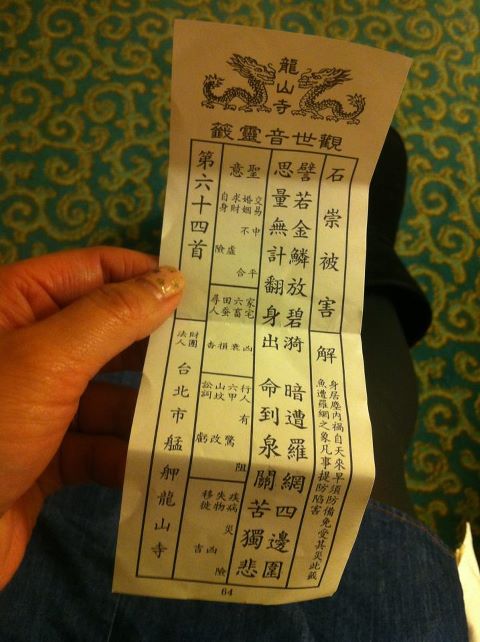 龍山寺
觀世音靈籤
石崇被害
解
身居塵內禍自天來早須防備免受其災此籤
魚遭羅網之象凡事提防陷害
譬若金鱗放碧漪 暗遭羅網四邊圍
思量無計翻身出 命到泉關苦獨悲
聖意
交易 中平
婚姻 不合
求財 虛
自身 險
家宅 凶
六畜 衰
田蚕 損
尋人
行人 有阻
六甲 驚
山坟 改
訟詞 虧
疾病 險
失物 凶
移徙 吉
第六十四首
財團法人
台北市艋舺龍山寺
64